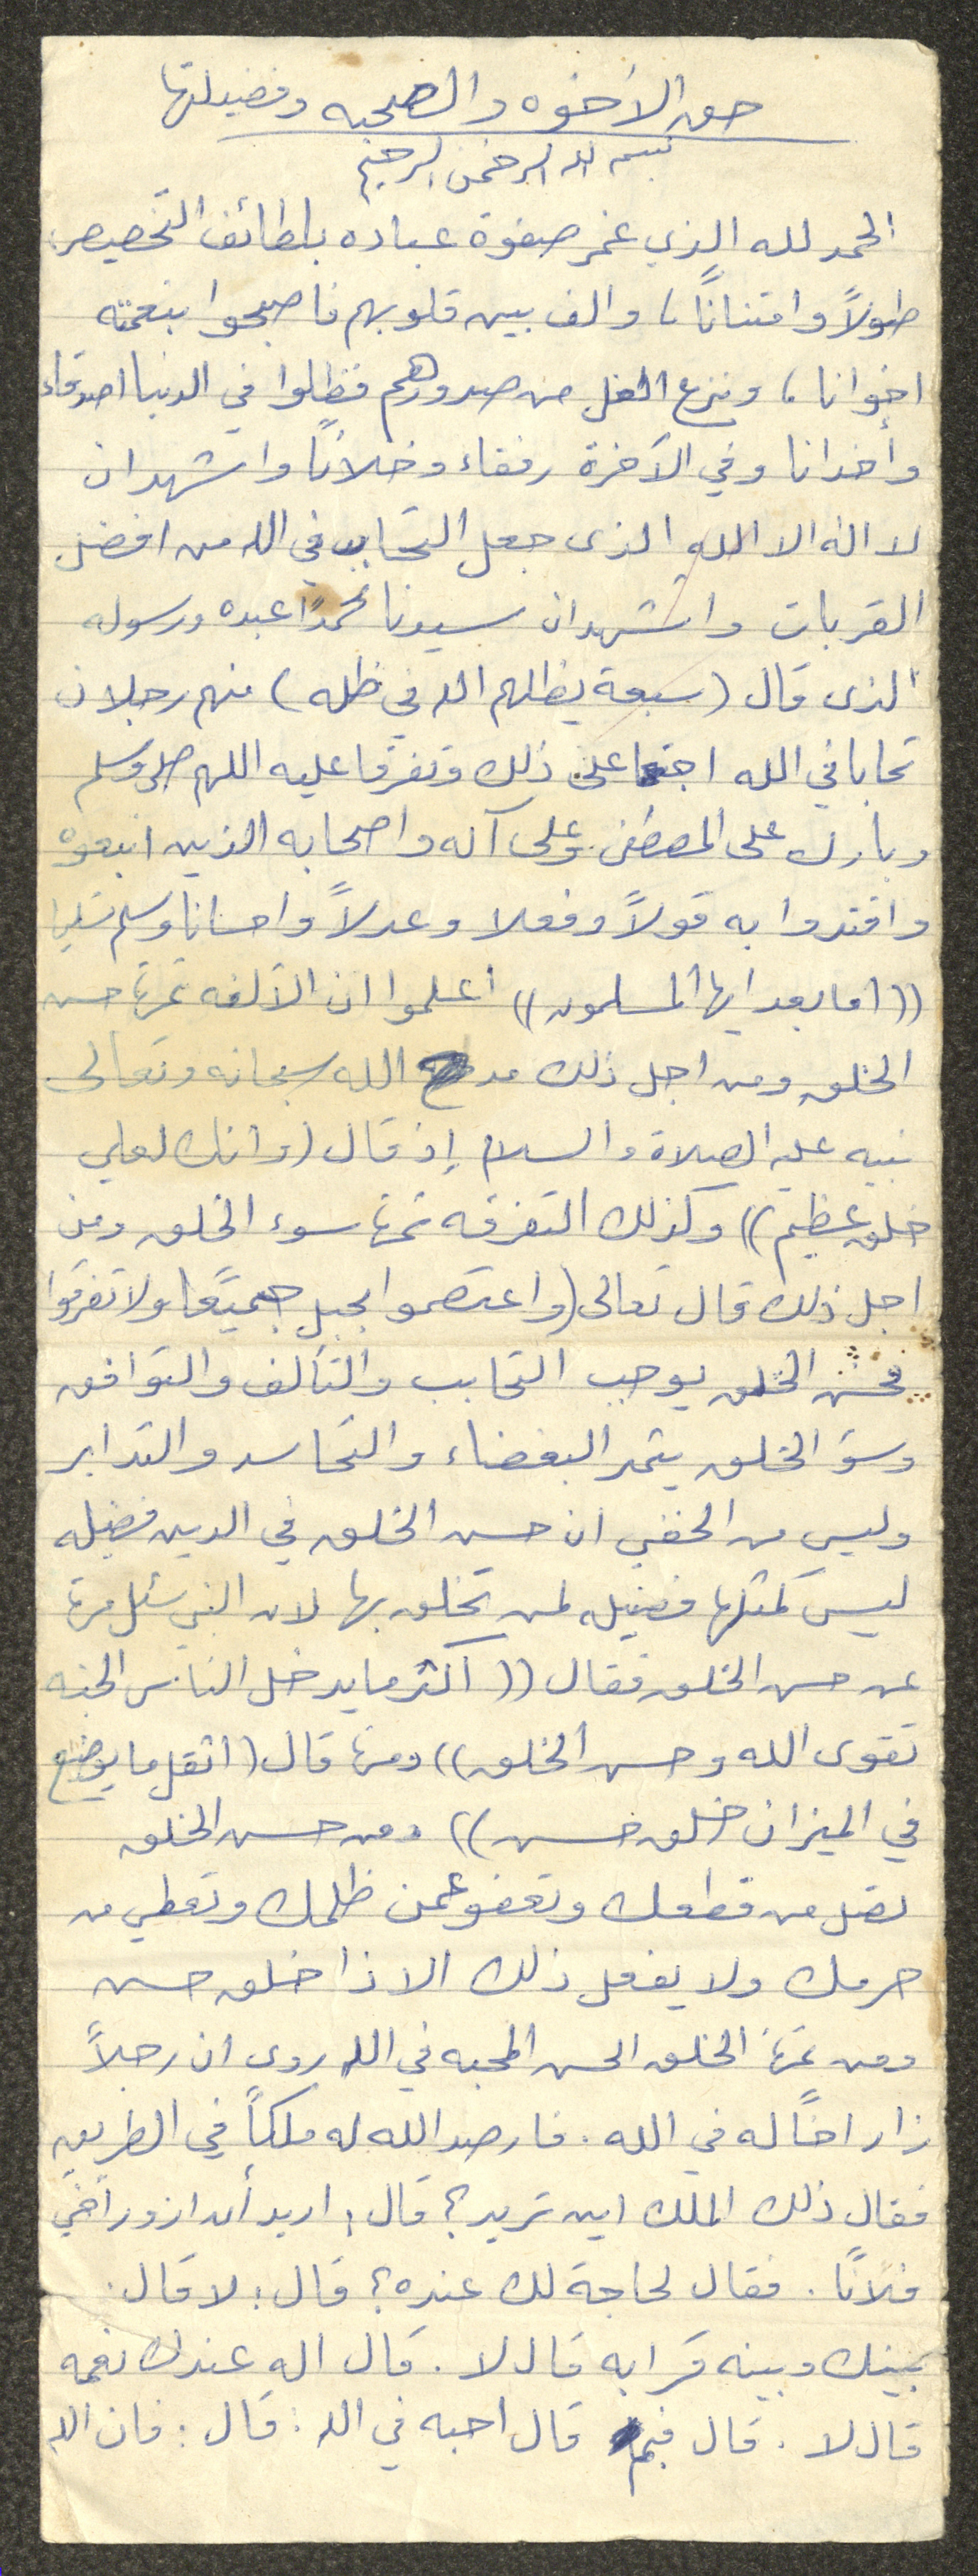 حق الأخوه والصحبه وفضيلتها
بسم الله الرحمن الرحيم
الحمد لله الذي غمر صفوة عباده بلطائف التخصيص
طولاً وامتناناً، والف بين قلوبهم فاصبحوا بنعمته
اخوانا، ونزع الغل من صدورهم فظلوا في الدنيا اصدقاء
وأخدانا وفي الآخرة رفقاء وخلانًا واشهد ان
لا اله الا الله الذى جعل التحابب في الله من افضل
القربات واشهد ان سيدنا محمدًا عبده ورسوله
الذى قال (سبعة يظلهم الله في ظله) منهم رجلان
تحابا في الله اجتمعا على ذلك وتفرقا عليه اللهم صل وسلم
وبارك على المصطفى وعلى آله واصحابه الذين اتبعوه
واقتدوا به قولاً وفعلا وعدلاً واحسانا وسلم تسليما
((اما بعد ايها المسلمون)) أعلموا ان الألفه ثمرتها حسن
الخلق ومن اجل ذلك مدح الله سبحانه وتعالى
نبيه عليه الصلاة والسلام إذ قال (وانك لعلى
خلق عظيم)) وكذلك التفرقه ثمرتها سوء الخلق ومن
اجل ذلك قال تعالى (واعتصموا بحبل جميعًا ولا تفرقوا
فحسن الخلق يوجب التحابب والتآلف والتوافق
وسؤ الخلق يثمر البغضاء والتحاسد والتدابر
وليس من الخفي ان حسن الخلق في الدين فضيله
ليس كمثلها فضيله لمن تخلق بها لان النبي سئل مرة
عن حسن الخلق فقال ((أكثر ما يدخل الناس الجنه
تقوى الله وحسن الخلق)) ومرة قال (اثقل ما يوضع
في الميزان خلق حسن)) ومن حسن الخلق
تصل من قطعك وتعفو عمن ظلمك وتعطي من
حرمك ولا يفعل ذلك الا ذا خلق حسن
ومن ثمرة الخلق الحسن المحبه في الله روى ان رجلاً
زار اخًا له في الله. فارصد الله له ملكاً في الطريق
فقال ذلك الملك اين تريد؟ قال: اريد أن ازور أخي
فلانًا. فقال لحاجة لك عنده؟ قال: لا قال:
بينك وبينه قرابه قال لا. قال اله عندك نعمه
قال لا. قال فبم قال احبه في الله: قال: فان الله